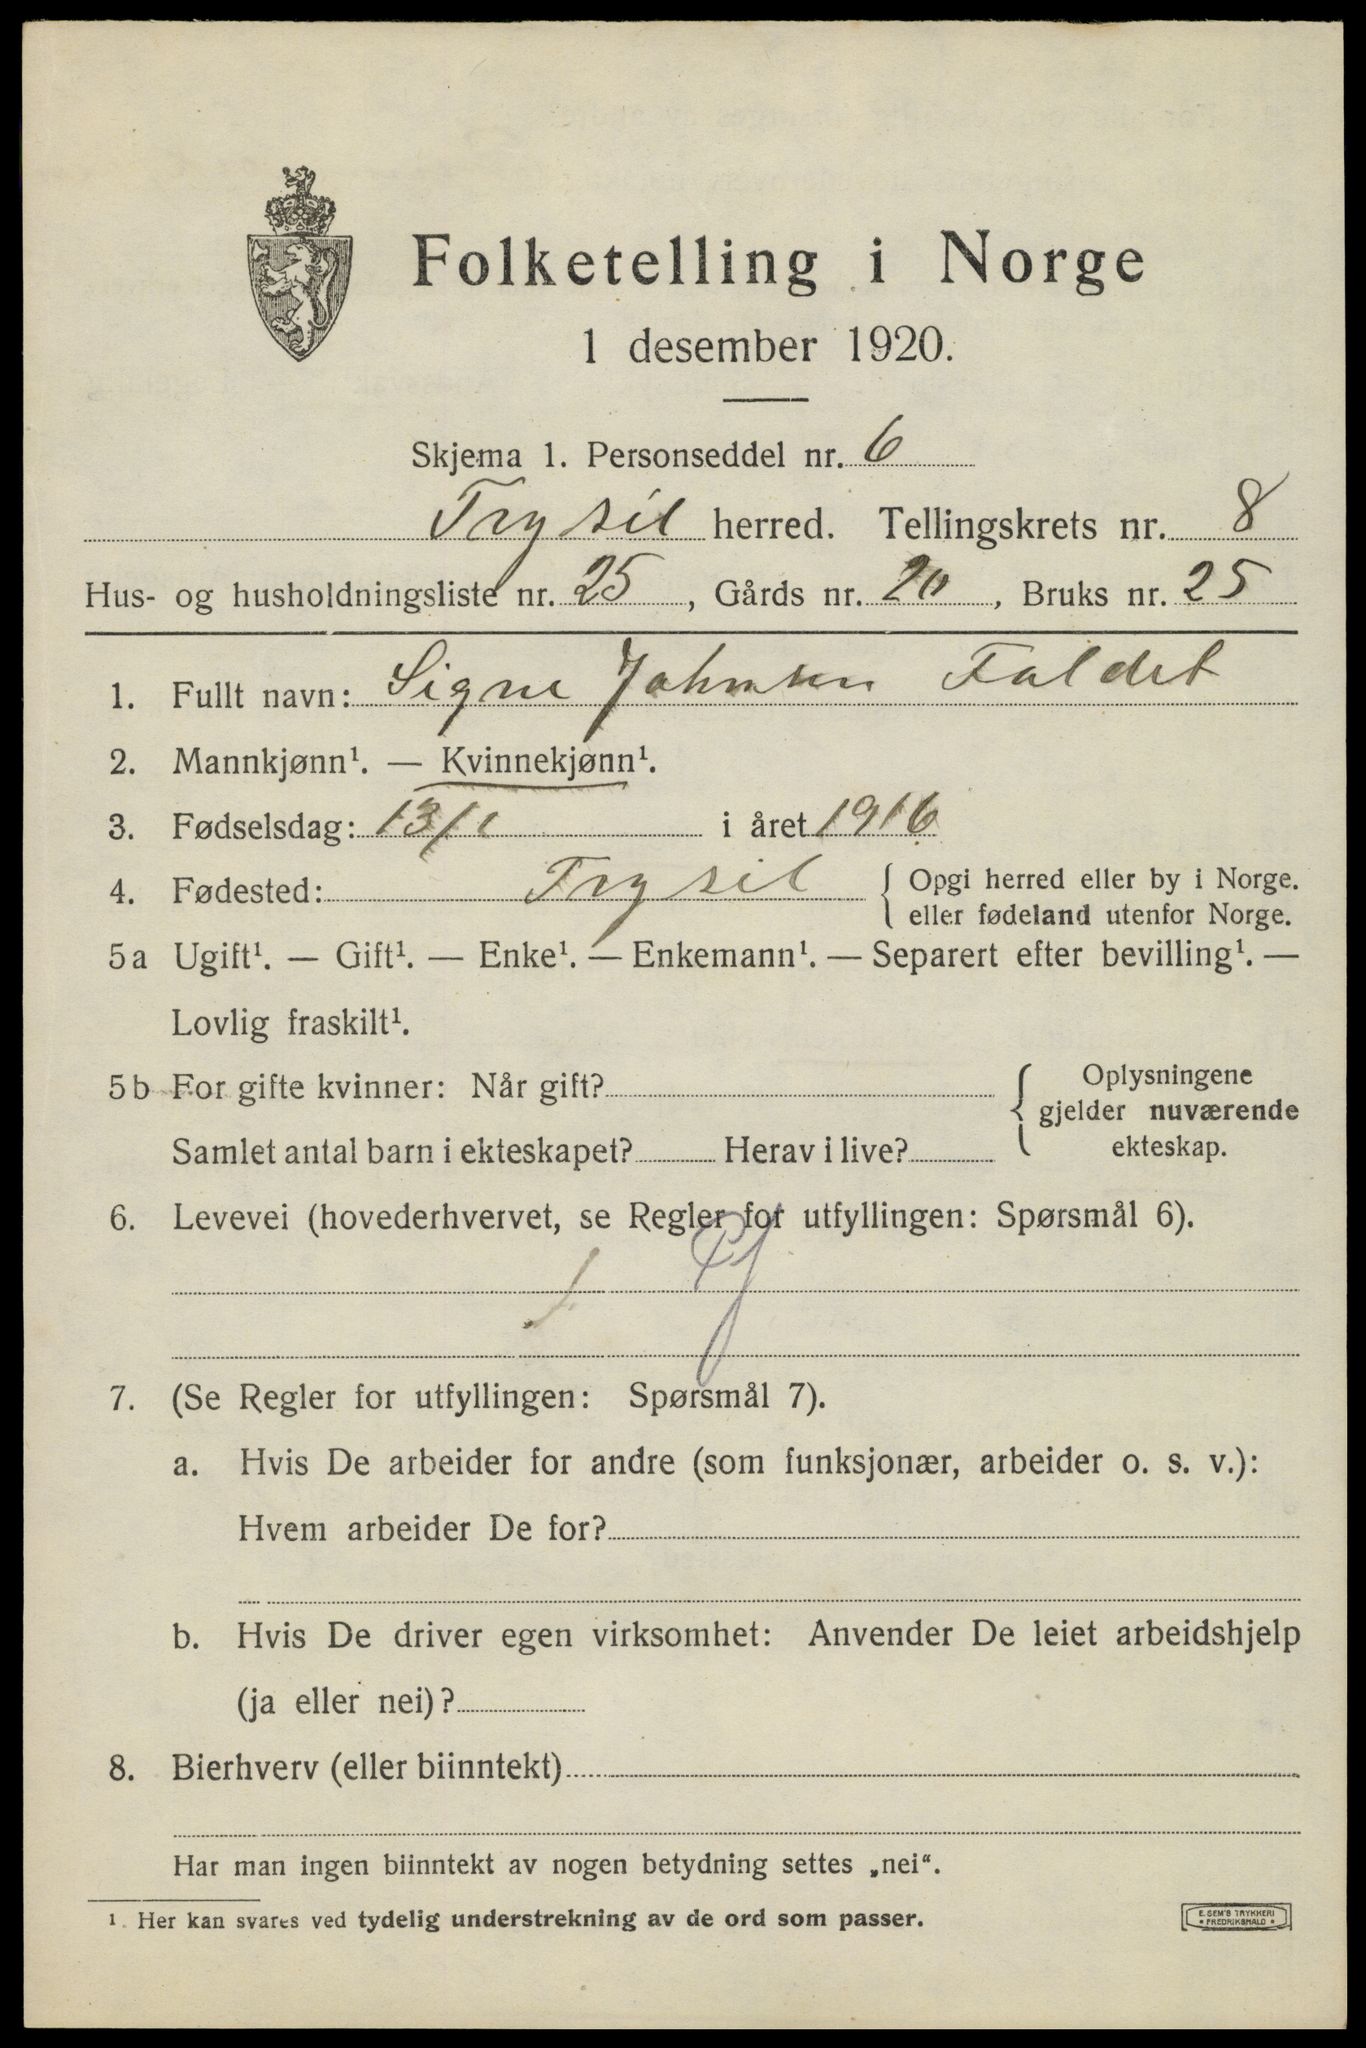 Folketelling i Norge
1 desember 1920.
Skjema 1. Personseddel nr. 6
Trysil herred. Tellingskrets nr. 8
Hus- og husholdningsliste nr. 25, Gårds nr. 20, Bruks nr. 25
1. Fullt navn: Signe Johnsen Faldet
2. Mannkjønn¹. — Kvinnekjønn¹.
3. Fødselsdag: 13/1 i året 1916
4. Fødested: Trysil { Opgi herred eller by i Norge.
eller fødeland utenfor Norge.
5a Ugift¹. — Gift¹. — Enke¹. — Enkemann¹. — Separert efter bevilling¹. —
Lovlig fraskilt¹.
5b For gifte kvinner: Når gift?
Samlet antal barn i ekteskapet? Herav i live?
{ Oplysningene
gjelder nuværende
ekteskap.
6. Levevei (hovederhvervet, se Regler for utfyllingen: Spørsmål 6).
7. (Se Regler for utfyllingen: Spørsmål 7).
a. Hvis De arbeider for andre (som funksjonær, arbeider o. s. v.):
Hvem arbeider De for?
b. Hvis De driver egen virksomhet: Anvender De leiet arbeidshjelp
(ja eller nei)?
8. Bierhverv (eller biinntekt)
Har man ingen biinntekt av nogen betydning settes „nei“.
¹ Her kan svares ved tydelig understrekning av de ord som passer.
E. SEM'S TRYKKERI
* FREDRIKSHALD *